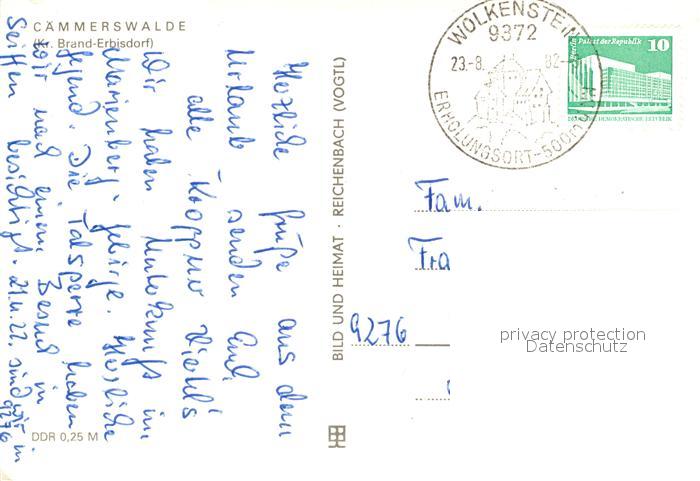 CÄMMERSWALDE
(Kr. Brand-Erbisdorf)
Herzliche Grüße aus dem
Urlaub senden Euch
alle
Wir haben Unterkunft im
Marienberg. Gebirge. Herrliche
Gegend. Die Talsperre haben
wir nach einem Besuch in
Seiffen besichtigt. 21. u. 22. sind wir in
9276
DDR 0,25 M
BILD UND HEIMAT · REICHENBACH (VOGTL)
WOLKENSTEIN
9372
23.-8. 82-
ERHOLUNGSORT-500m ü
Berlin, Palast der Republik
10
DEMOKRATISCHE REPUBLIK
Fam.
Fra
9276
privacy protection
Datenschutz